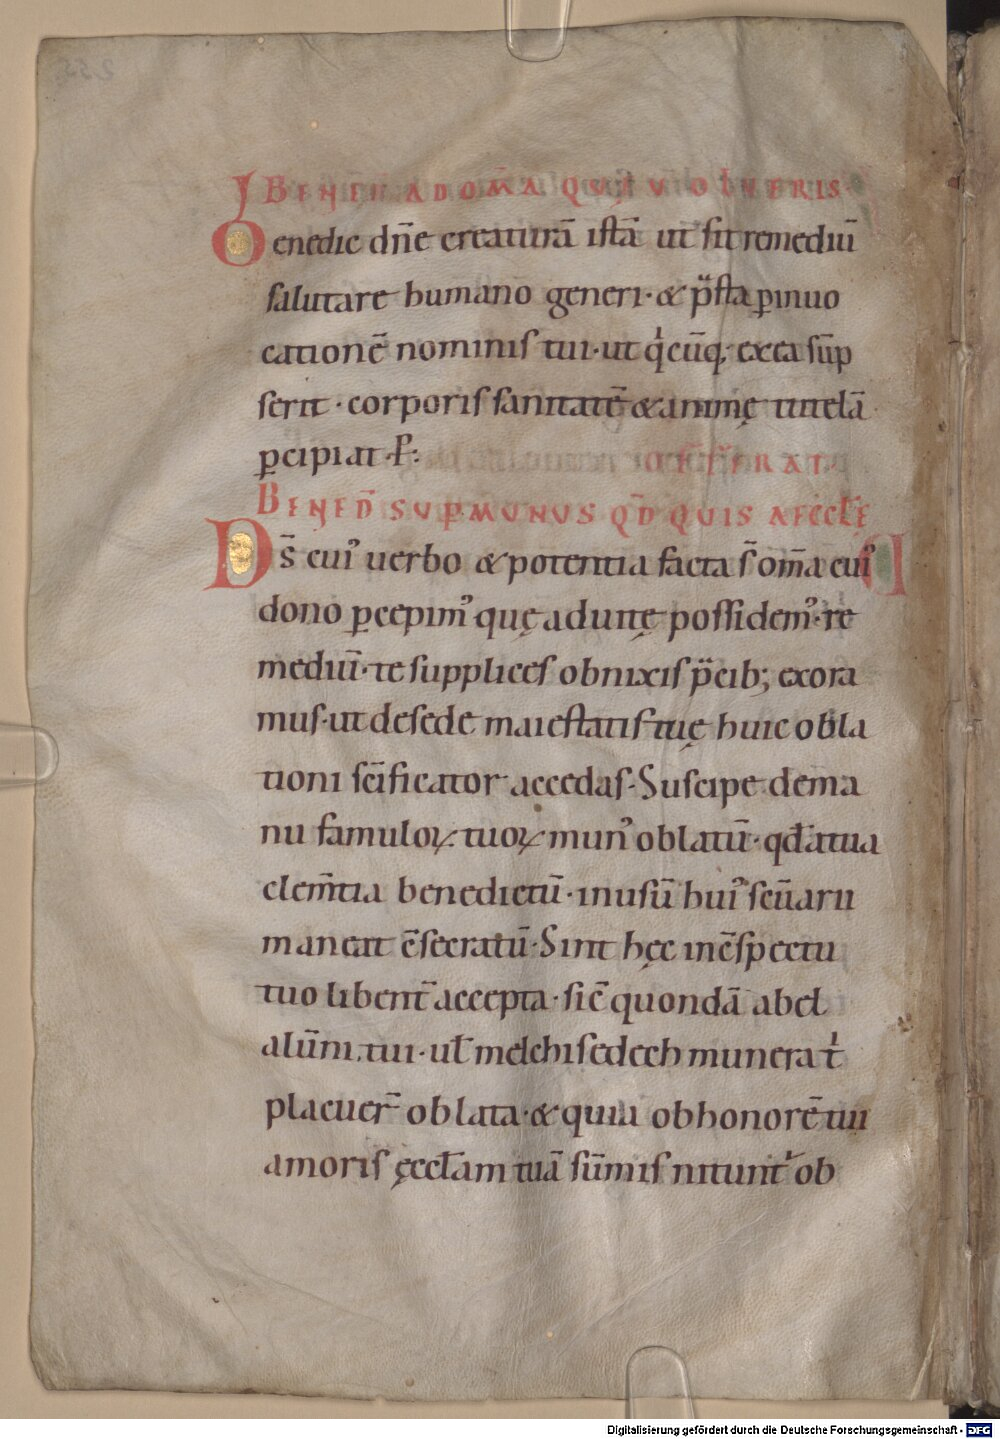 BENED̄ AD OM̄A QUĘ VOLUERIS·
Benedic dn̄e creaturā istā ut sit remediū
salutare humano generi· & p̈sta ꝑ inuo
cationē nominis tui· ut qͥcūq; ex ea sūp
serit· corporis sanitatē & animę tutelā
ꝑcipiat· P̄:
OFFERAT·
BENED̄ SUꝑ MUNUS QD̄ QUIS AECCLĘ
Ds̄ cuiꝰ uerbo & potentia facta s̄ om̄a cuiꝰ
dono ꝑcepimꝰ quę ad uitę possidemꝰ· re
mediū· te supplices obnixis p̈cib; exora
mus· ut de sede maiestatis tuę huic obla
tioni sc̄ificator accedas· Suscipe de ma
nu famuloꝝ tuoꝝ munꝰ oblatū· qđ a tua
clem̄tia benedictū· in usū huiꝰ sc̄uarii
maneat c̄secratū· Sint hęc in c̄spectu
tuo libent̄ accepta· sic̄ quondā abel
alūni tui· ul̄ melchisedech munera tͥ
placuer̄ oblata· & quia ob honorē tui
amoris ęccl̄am tuā sūmis nitunt̄ ob